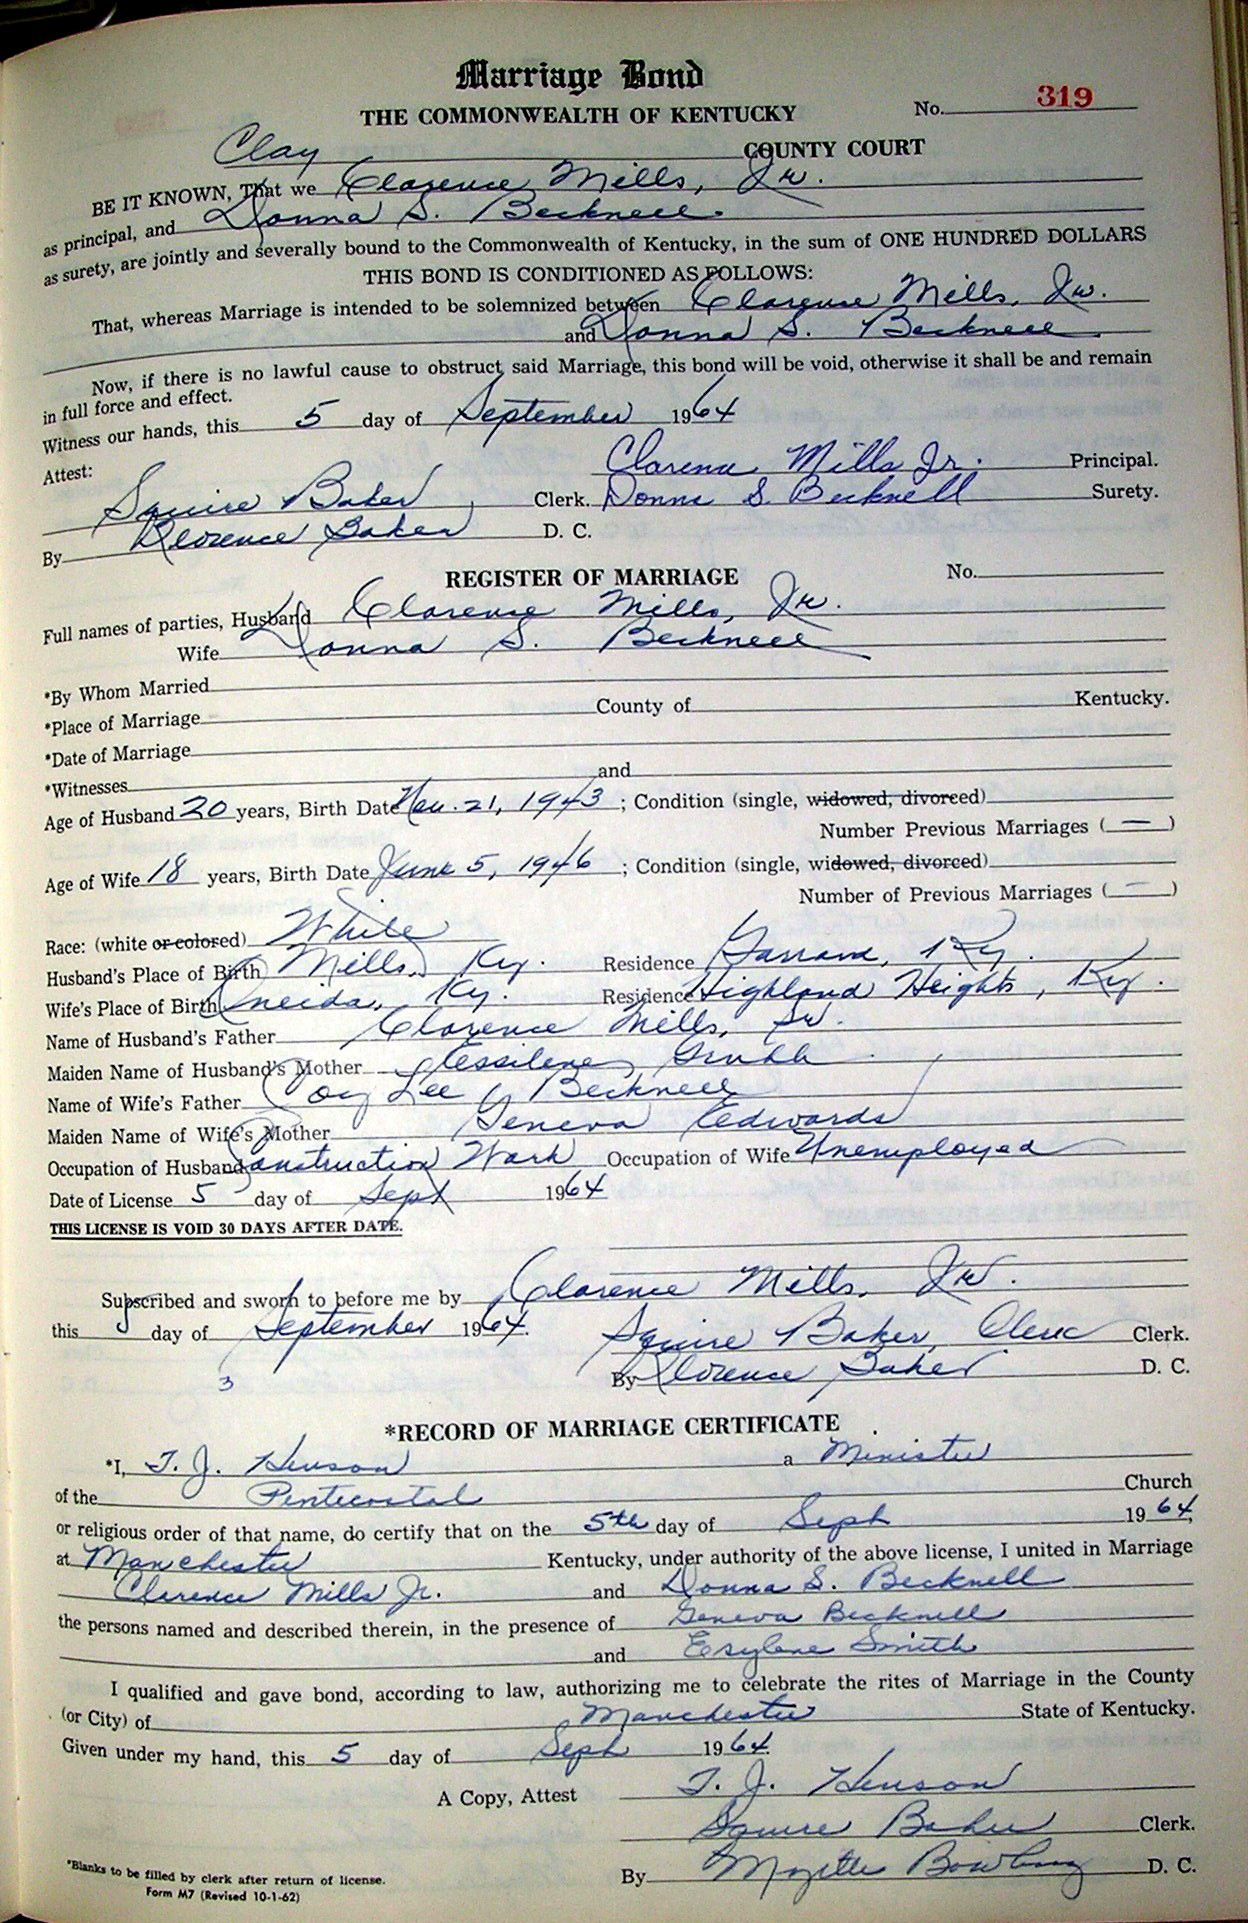 Marriage Bond
THE COMMONWEALTH OF KENTUCKY No. 319
Clay COUNTY COURT
BE IT KNOWN, That we Clarence Mills, Jr.
as principal, and Donna S. Becknell
as surety, are jointly and severally bound to the Commonwealth of Kentucky, in the sum of ONE HUNDRED DOLLARS
THIS BOND IS CONDITIONED AS FOLLOWS:
That, whereas Marriage is intended to be solemnized between Clarence Mills, Jr.
and Donna S. Becknell
Now, if there is no lawful cause to obstruct said Marriage, this bond will be void, otherwise it shall be and remain
in full force and effect.
Witness our hands, this 5 day of September 1964
Attest: Clarence Mills Jr. Principal.
Squire Baker, Clerk. Donna S. Becknell Surety.
By Florence Baker D. C.
REGISTER OF MARRIAGE No.
Full names of parties, Husband Clarence Mills, Jr.
Wife Donna S. Becknell
*By Whom Married
*Place of Marriage County of Kentucky.
*Date of Marriage
*Witnesses and
Age of Husband 20 years, Birth Date Nov. 21, 1943 ; Condition (single, widowed, divorced)
Number Previous Marriages ( — )
Age of Wife 18 years, Birth Date June 5, 1946 ; Condition (single, widowed, divorced)
Number of Previous Marriages ( — )
Race: (white or colored) White
Husband's Place of Birth Mills, Ky. Residence Garrard, Ky.
Wife's Place of Birth Oneida, Ky. Residence Highland Heights, Ky.
Name of Husband's Father Clarence Mills, Sr.
Maiden Name of Husband's Mother Grubb
Name of Wife's Father Lee Becknell
Maiden Name of Wife's Mother Geneva Edwards
Occupation of Husband Construction Work Occupation of Wife Unemployed
Date of License 5 day of Sept 1964
THIS LICENSE IS VOID 30 DAYS AFTER DATE.
Subscribed and sworn to before me by Clarence Mills, Jr.
this 5 day of September 1964. Squire Baker, Clerk Clerk.
3 By Florence Baker D. C.
*RECORD OF MARRIAGE CERTIFICATE
*I, T. J. Henson a Minister
of the Pentecostal Church
or religious order of that name, do certify that on the 5th day of Sept 1964,
at Manchester Kentucky, under authority of the above license, I united in Marriage
Clarence Mills Jr. and Donna S. Becknell
the persons named and described therein, in the presence of Geneva Becknell
and Esylene Smith
I qualified and gave bond, according to law, authorizing me to celebrate the rites of Marriage in the County
(or City) of Manchester State of Kentucky.
Given under my hand, this 5 day of Sept 1964.
A Copy, Attest T. J. Henson
Squire Baker Clerk.
By Bowling D. C.
*Blanks to be filled by clerk after return of license.
Form M7 (Revised 10-1-62)